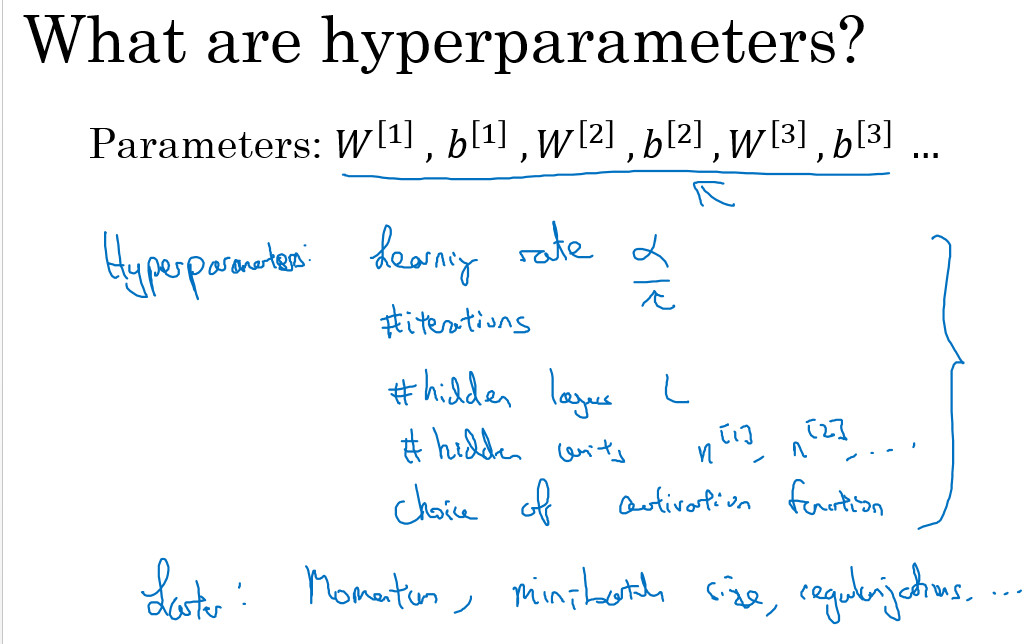 What are hyperparameters?
Parameters: W[1] , b[1] , W[2] , b[2] , W[3] , b[3] ...
Hyperparameters: Learning rate α
#iterations
#hidden layers L
#hidden units n[1], n[2], ...
Choice of activation function
Later: Momentum, mini-batch size, regularizations, ...